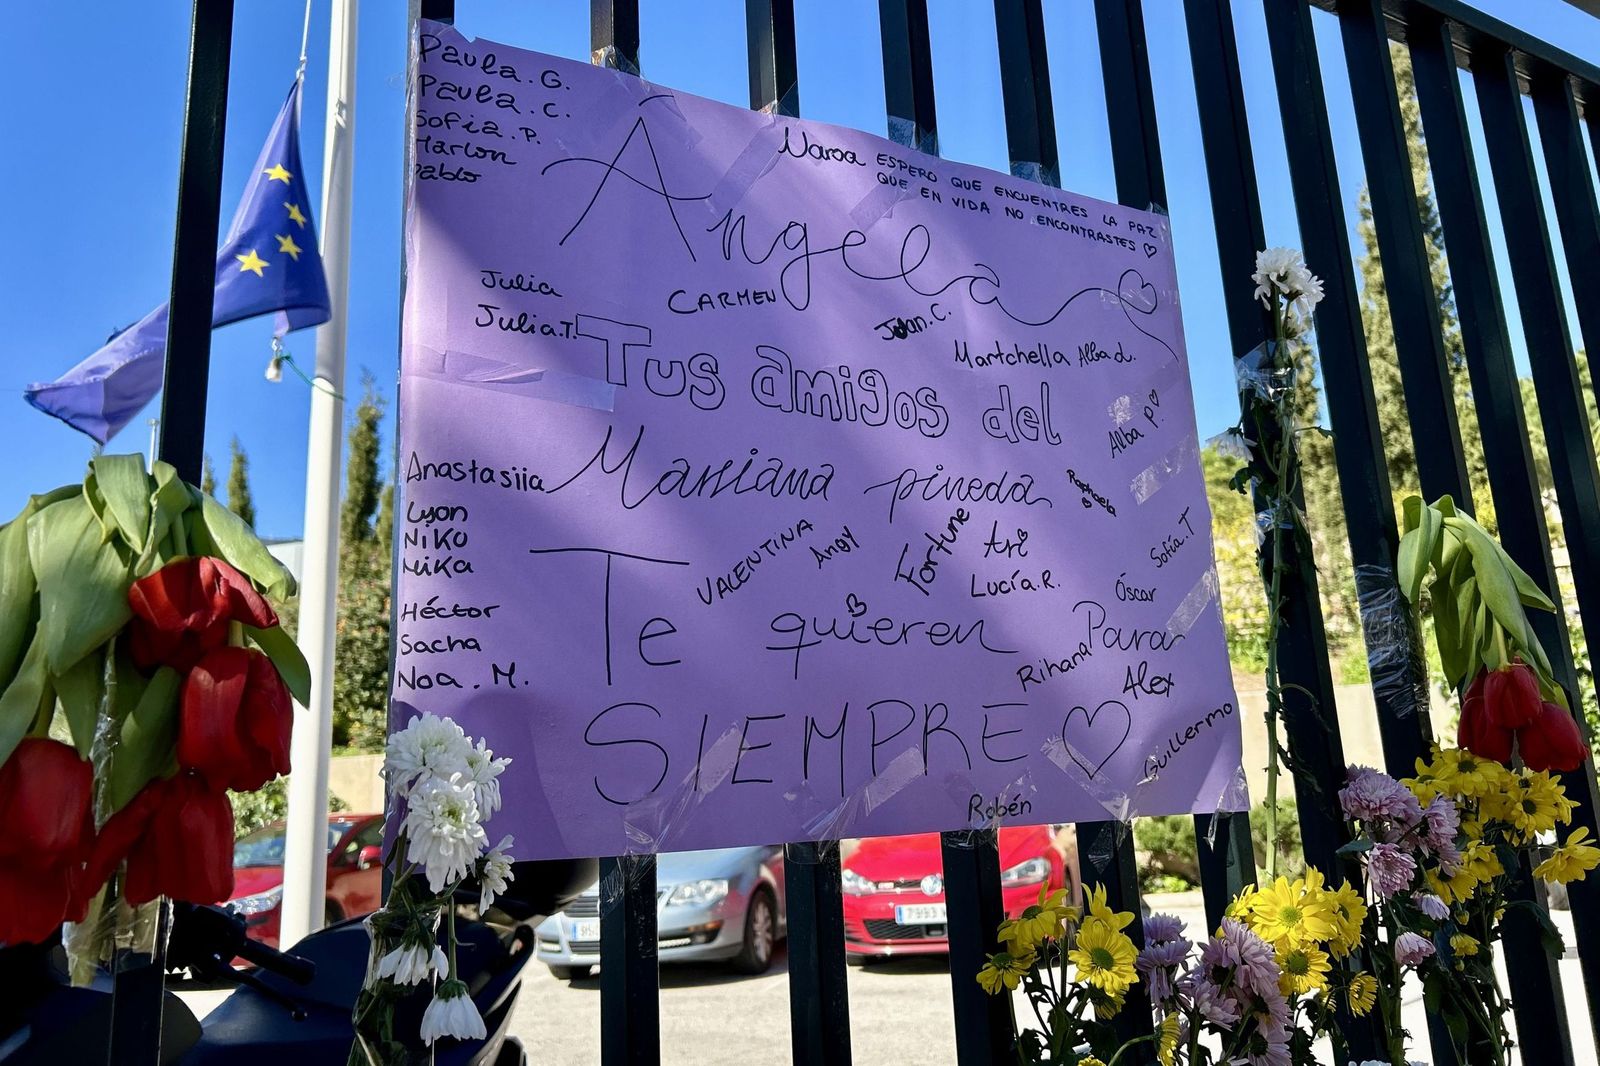 Paula. G.
Paula. C.
Sofia. P.
Marlon
Pablo
Ángela
Naroa
ESPERO QUE ENCUENTRES LA PAZ
QUE EN VIDA NO ENCONTRASTES
Julia
Julia.T.
CARMEN
Juan.C.
Martchella
Alba d.
Tus amigos del
Alba P.
Mariana pineda
Raphaela
Anastasiia
Lyon
Niko
Nika
Héctor
Sacha
Noa. M.
VALENTINA
Angy
Fortune
Ari
Lucía.R.
Sofía.T
Óscar
Te quieren Para
Rihana
Alex
SIEMPRE
Guillermo
Robén